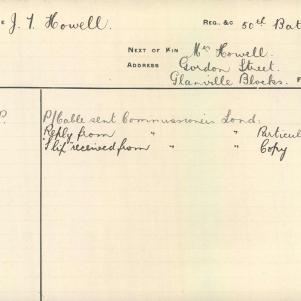 E J. T. Howell. REG. &C 50th Bat
NEXT OF KIN Mrs Howell.
ADDRESS Gordon Street.
Glanville Blocks. F
P. P/Cable sent Commissioneis Lond:
Reply from " " Particul
Slip received from " " Copy